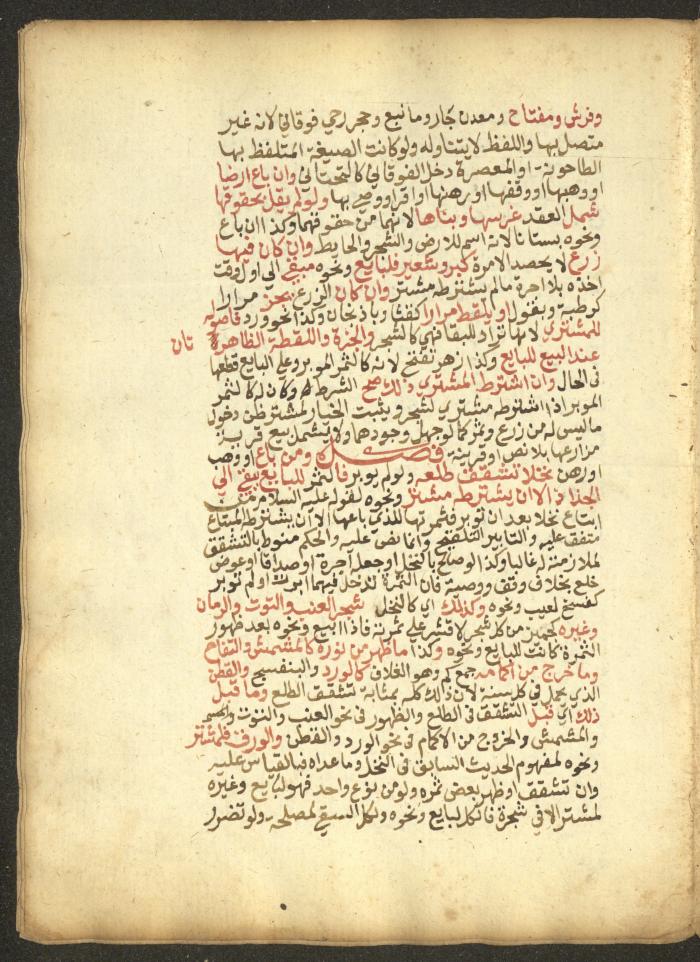 وفرش ومفتاح ومعدن جار وما نبع وحجر رحي فوقاني لانه غير
متصل بها واللفظ لا يتناوله ولو كانت الصيغة المتلفظ بها
الطاحونة او المعصرة دخل الفوقاني كالتحتاني وان باع ارضا
او وهبها او وقفها او رهنها او اقر او وصي بها ولو لم يقل بحقوقها
شمل العقد غرسها وبناها لانهما من حقوقهما وكذا ان باع
ونحوه بستانا لانه اسم للارض والشجر والحايط وان كان فيها
زرع لا يحصد الا مرة كبر وشعير فلبايع ونحوه مبقي الي اول وقت
اخذه بلا اجرة ما لم يشترطه مشتر وان كان الزرع يجز مرارا
كرطبة وبقول او يلقط مرارا كقثا وباذنجان وكذا نحو ورد فاصوله
للمشتري لانها تراد للبقا فهي كالشجر والجزة واللقطة الظاهرة تان
عند البيع للبايع وكذا زهر تفتح لانه كالثمر الموبر وعلي البايع قطعها
في الحال وان اشترط المشتري ذلك صح الشرط وكان له كالثمر
الموبر اذا اشترطه مشتري لشجر ويثبت الخيار لمشتر ظن دخول
ما ليس له من زرع وثمر كما لو جهل وجودهما ولا يشمل بيع قرية
مزارعها بلا نص او قرينة فصل ومن باع او وهب
او رهن نخلا تشقق طلعه ولو لم يوبر فالثمر للبايع يبقي الي
الجذاذ الا ان يشترطه مشتر ونحوه لقوله عليه السلام من
ابتاع نخلا بعد ان توبر فثمرتها للذي باعها الا ان يشترط المبتاع
متفق عليه والتابير التلقيح وانما نص عليه والحكم منوط بالتشقق
لملازمته له غالبا وكذا لو صالح بالنخل او جعل اجرة او صداقا او عوض
خلع بخلاف وقف ووصية فان الثمرة تدخل فيهما ابرت او لم توبر
كفسخ لعيب ونحوه وكذلك اي كالنخل شجر العنب والتوت والرمان
وغيره كجميز من كل شجر لا قشر علي ثمرته فاذا ابيع ونحوه بعد ظهور
الثمرة كانت للبايع ونحوه وكذا ما ظهر من نوره كالمشمش والتفاح
وما خرج من اكمامه جمع كم وهو الغلاف كالورد والبنفسج والقطن
الذي يحمل في كل سنة لان ذالك كله بمثابة تشقق الطلع وما قبل
ذلك اي قبل التشقق في الطلع والظهور في نحو العنب والتوت
والمشمش والخروج من الاكمام في نحو الورد والقطن والورق فلمشتر
ونحوه لمفهوم الحديث السابق في النخل وما عداه فبالقياس عليه
وان تشقق او ظهر بعض ثمره ولو من نوع واحد فهو لبايع وغيره
لمشتر الا في شجرة فالكل لبايع ونحوه ولكل السقي لمصلحة ولو تضرر